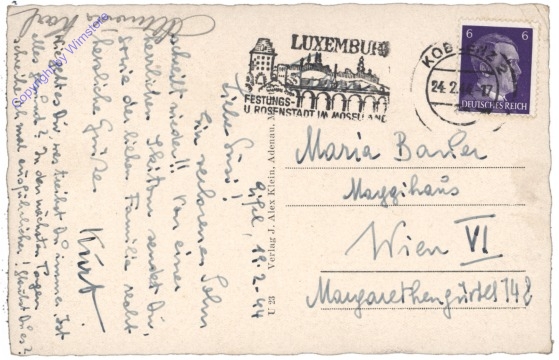 Eifel, 19.2.44
Liebe Susi!
Ein verlorener Sohn
schreibt wieder!! Von einer
herrlichen Skitour sendet Dir,
sowie der lieben Familie recht
herzliche Grüße
Kurt.
Wie geht es Dir, was treibst Du immer. Ist
alles gesund? In den nächsten Tagen
schreibe ich mal ausführlicher! Glaubst Du es?
Karl
U 23 Verlag J. Alex Klein, Adenau,
LUXEMBURG
FESTUNGS-
U. ROSENSTADT IM MOSELLAND
KOBLENZ
24.2.44.-17
6 6
DEUTSCHES REICH
Maria Bauer
Maggihaus
Wien VI
Margarethengürtel 148
Copyright by Wimstern